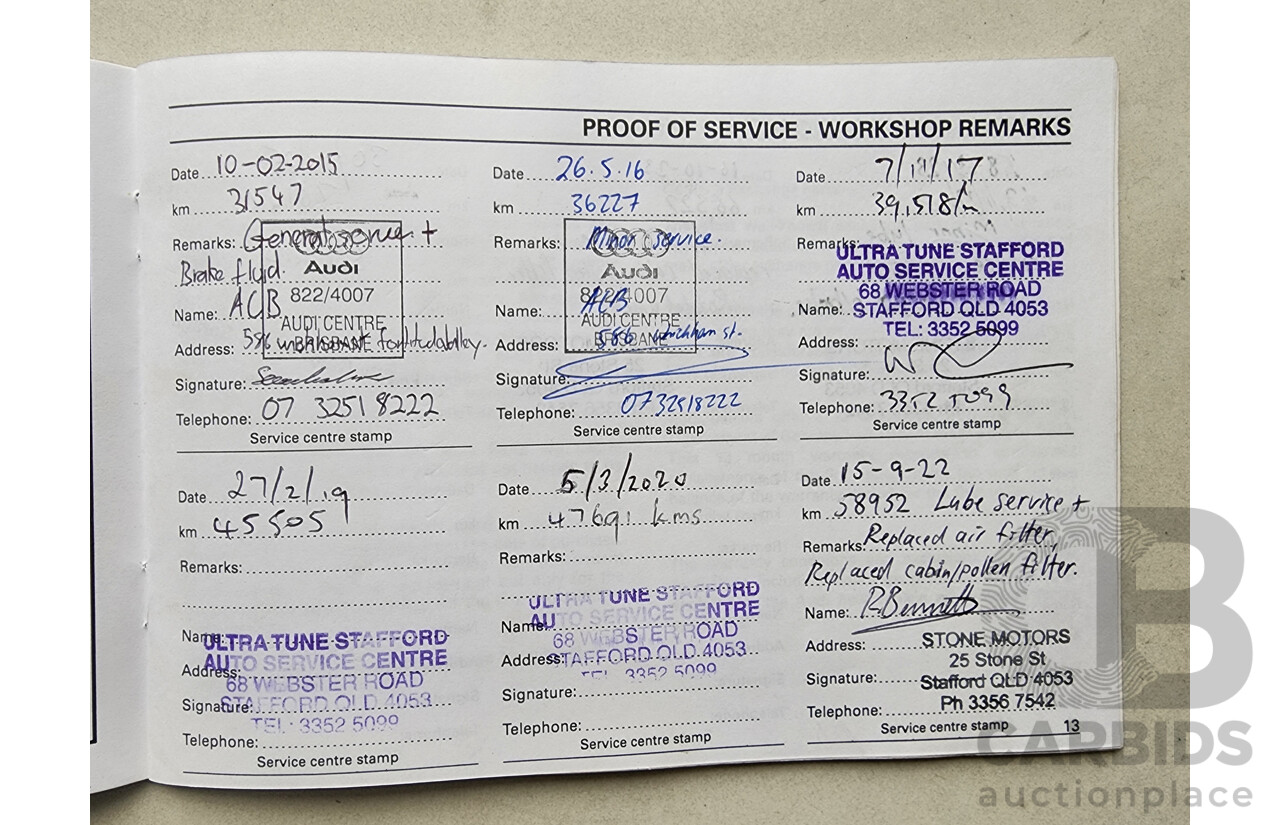 PROOF OF SERVICE - WORKSHOP REMARKS
Date 10-02-2015
km 31547
Remarks: General service +
Brake fluid.
Name: ACB
Address: 586
Signature:
Telephone: 07 3251 8222
Service centre stamp
Audi
822/4007
AUDI CENTRE
BRISBANE
Date 26.5.16
km 36227
Remarks: Minor service.
Name: ACB
Address: 586 st.
Signature:
Telephone: 07 32518222
Service centre stamp
Audi
822/4007
AUDI CENTRE
BRISBANE
Date 7/11/17
km 39,518
Remarks:
Name:
Address:
Signature:
Telephone: 3352 5099
Service centre stamp
ULTRA TUNE STAFFORD
AUTO SERVICE CENTRE
68 WEBSTER ROAD
STAFFORD QLD 4053
TEL: 3352 5099
Date 27/2/19
km 45505
Remarks:
Name:
Address:
Signature:
Telephone:
Service centre stamp
ULTRA TUNE STAFFORD
AUTO SERVICE CENTRE
68 WEBSTER ROAD
STAFFORD QLD 4053
TEL: 3352 5099
Date 5/3/2020
km 47691 kms
Remarks:
Name:
Address:
Signature:
Telephone:
Service centre stamp
ULTRA TUNE STAFFORD
AUTO SERVICE CENTRE
68 WEBSTER ROAD
STAFFORD QLD 4053
TEL: 3352 5099
Date 15-9-22
km 58952 Lube service +
Remarks: Replaced air filter,
Replaced cabin/pollen filter.
Name: R Bennett
Address:
Signature:
Telephone:
Service centre stamp
STONE MOTORS
25 Stone St
Stafford QLD 4053
Ph 3356 7542
13
CARBIDS
auctionplace